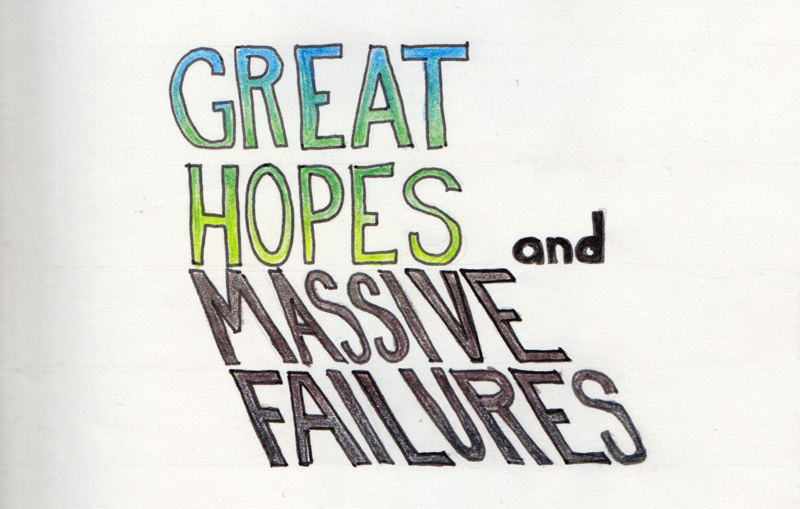 GREAT
HOPES and
MASSIVE
FAILURES